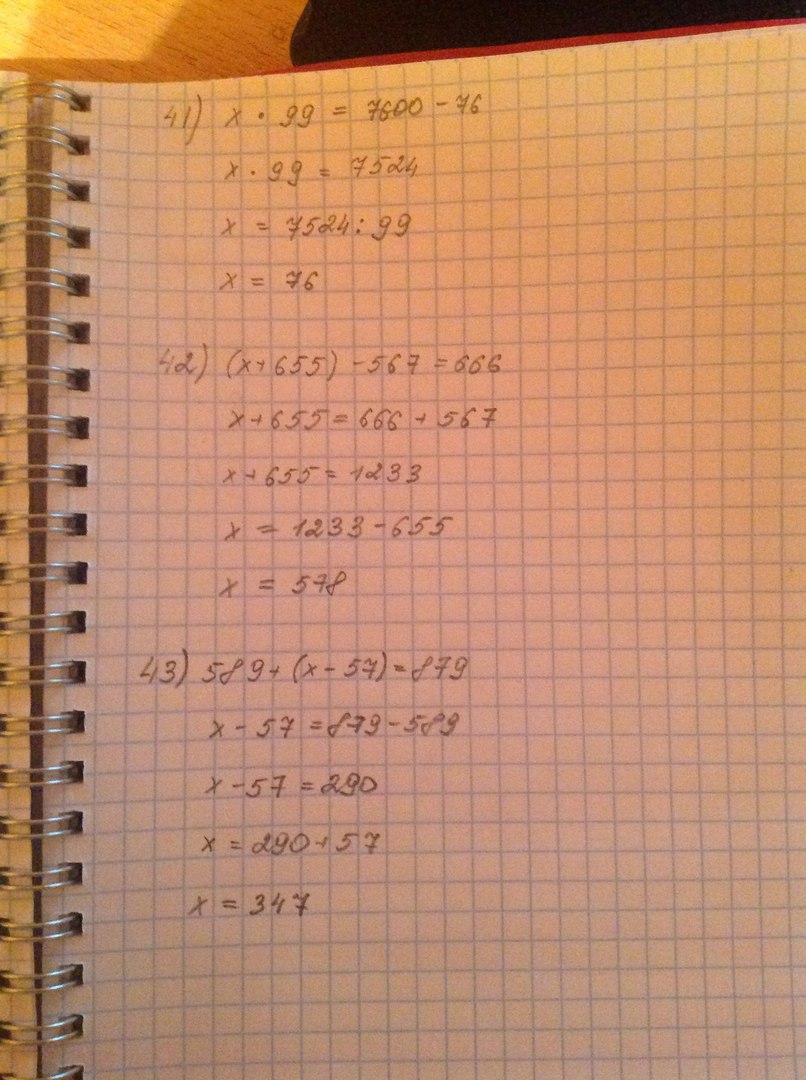 41) x · 99 = 7600 - 76
x · 99 = 7524
x = 7524 : 99
x = 76
42) (x+655) - 567 = 666
x+655 = 666 + 567
x+655 = 1233
x = 1233 - 655
x = 578
43) 589 + (x - 57) = 879
x - 57 = 879 - 589
x - 57 = 290
x = 290 + 57
x = 347